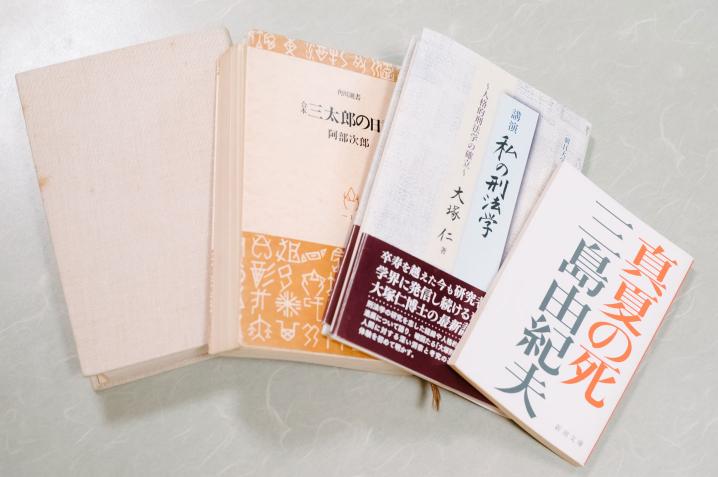 角川選書
合本
三太郎の日
阿部次郎
講演
私の刑法学
～人格的刑法学の確立～
大塚 仁 著
朝日大学
卒寿を越えた今も研究者
学界に発信し続ける
大塚仁博士の最新
真夏の死
三島由紀夫
新潮文庫